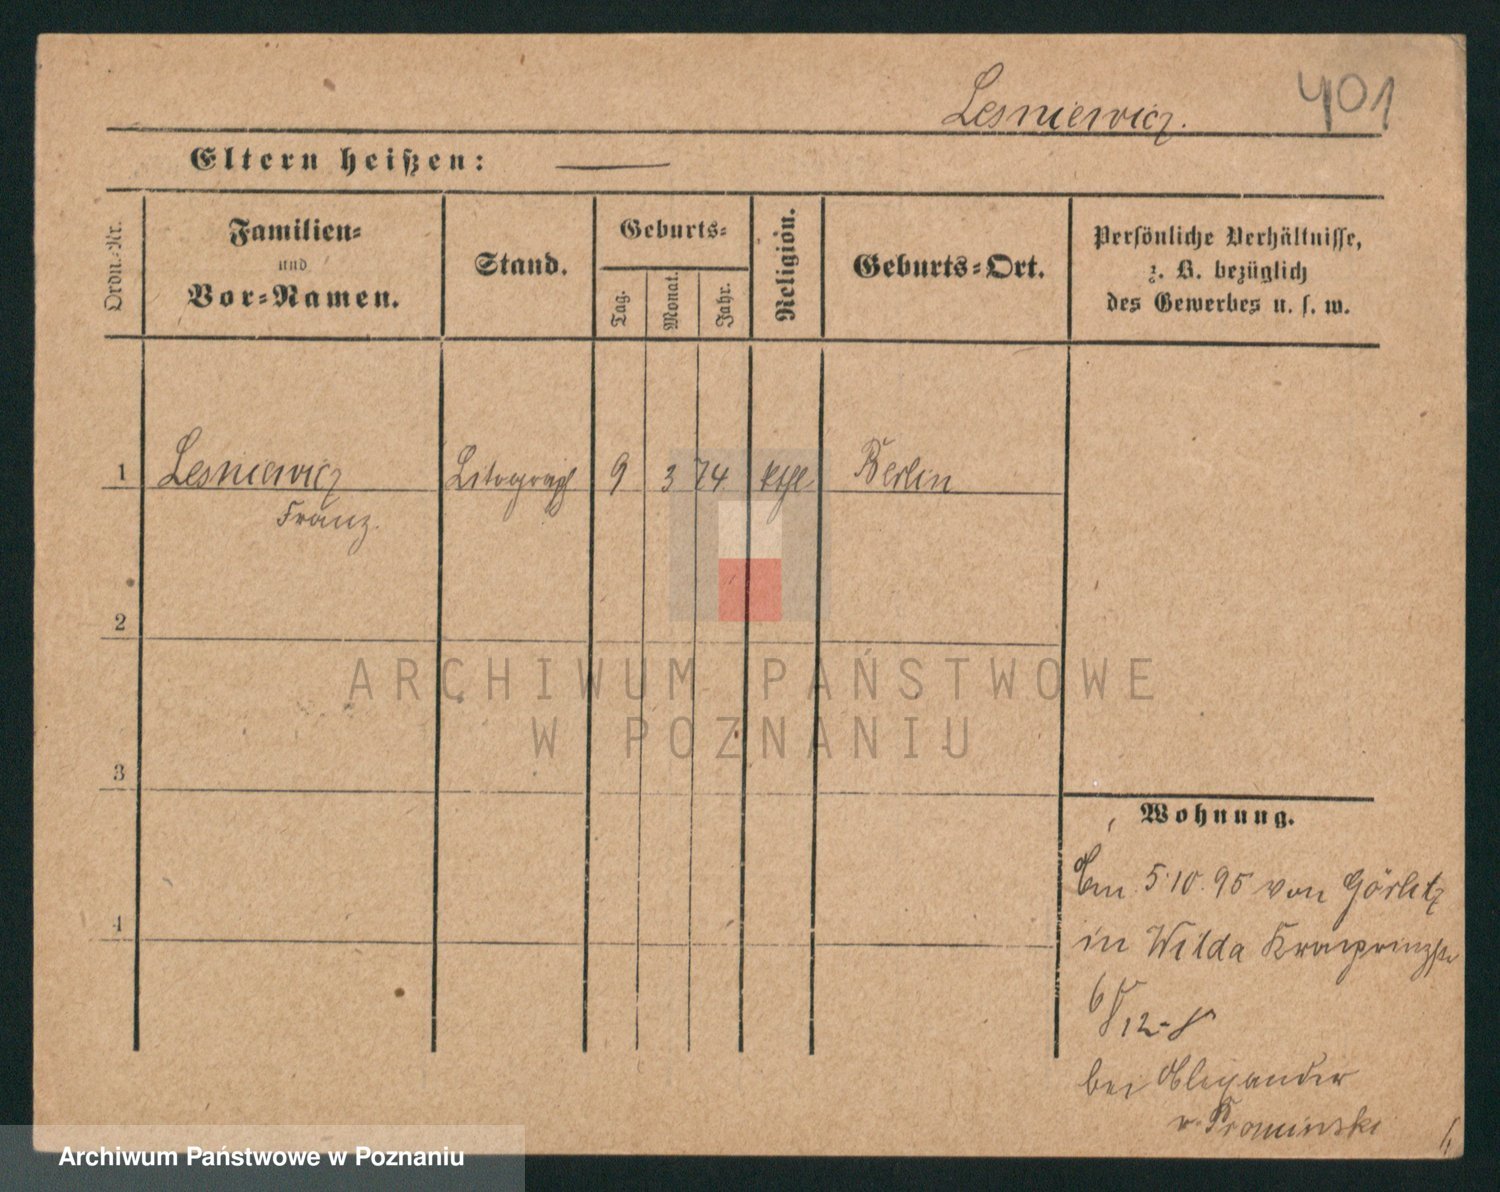 Lesniewicz.
401
Eltern heißen: —
Ordn.-Nr.
Familien-
und
Vor-Namen.
Stand.
Geburts-
Tag.
Monat.
Jahr.
Religion.
Geburts-Ort.
Persönliche Verhältnisse,
z. B. bezüglich
des Gewerbes u. s. w.
1 Lesniewicz Litograph 9 3 74 kthl Berlin
Franz.
2
ARCHIWUM PAŃSTWOWE
W POZNANIU
3
Wohnung.
4
5.10.95 von Görlitz
in Wilda Kronprinzstr
6
bei Alexander
v. Prominski
Archiwum Państwowe w Poznaniu